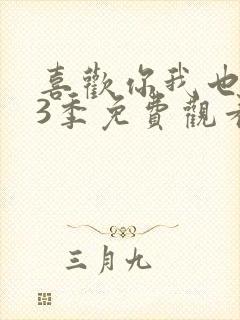 喜歡你我也
3季免費觀看
三月九